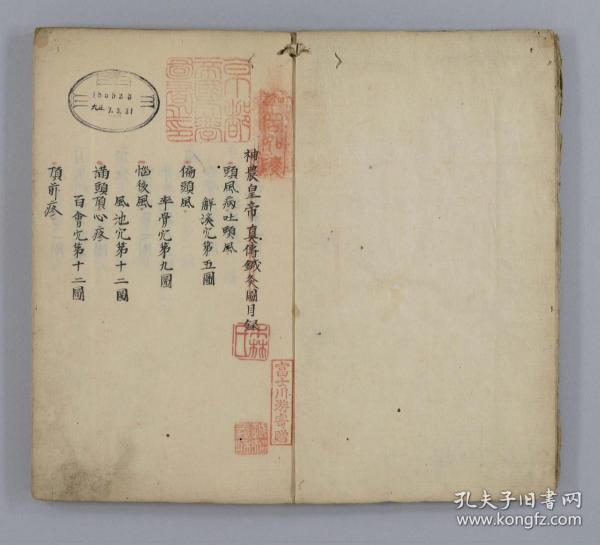 神農皇帝真傳鍼灸圖目錄
頭風病吐頭風
解溪穴第五圖
偏頭風
率骨穴第九圖
惱後風
風池穴第十二圖
滿頭頂心疼
百會穴第十二圖
頂前疼
京都
帝國大學
圖書之印
富士川游寄贈
林氏
185933
大正 7.3.31
孔夫子旧书网
www.kongfz.com